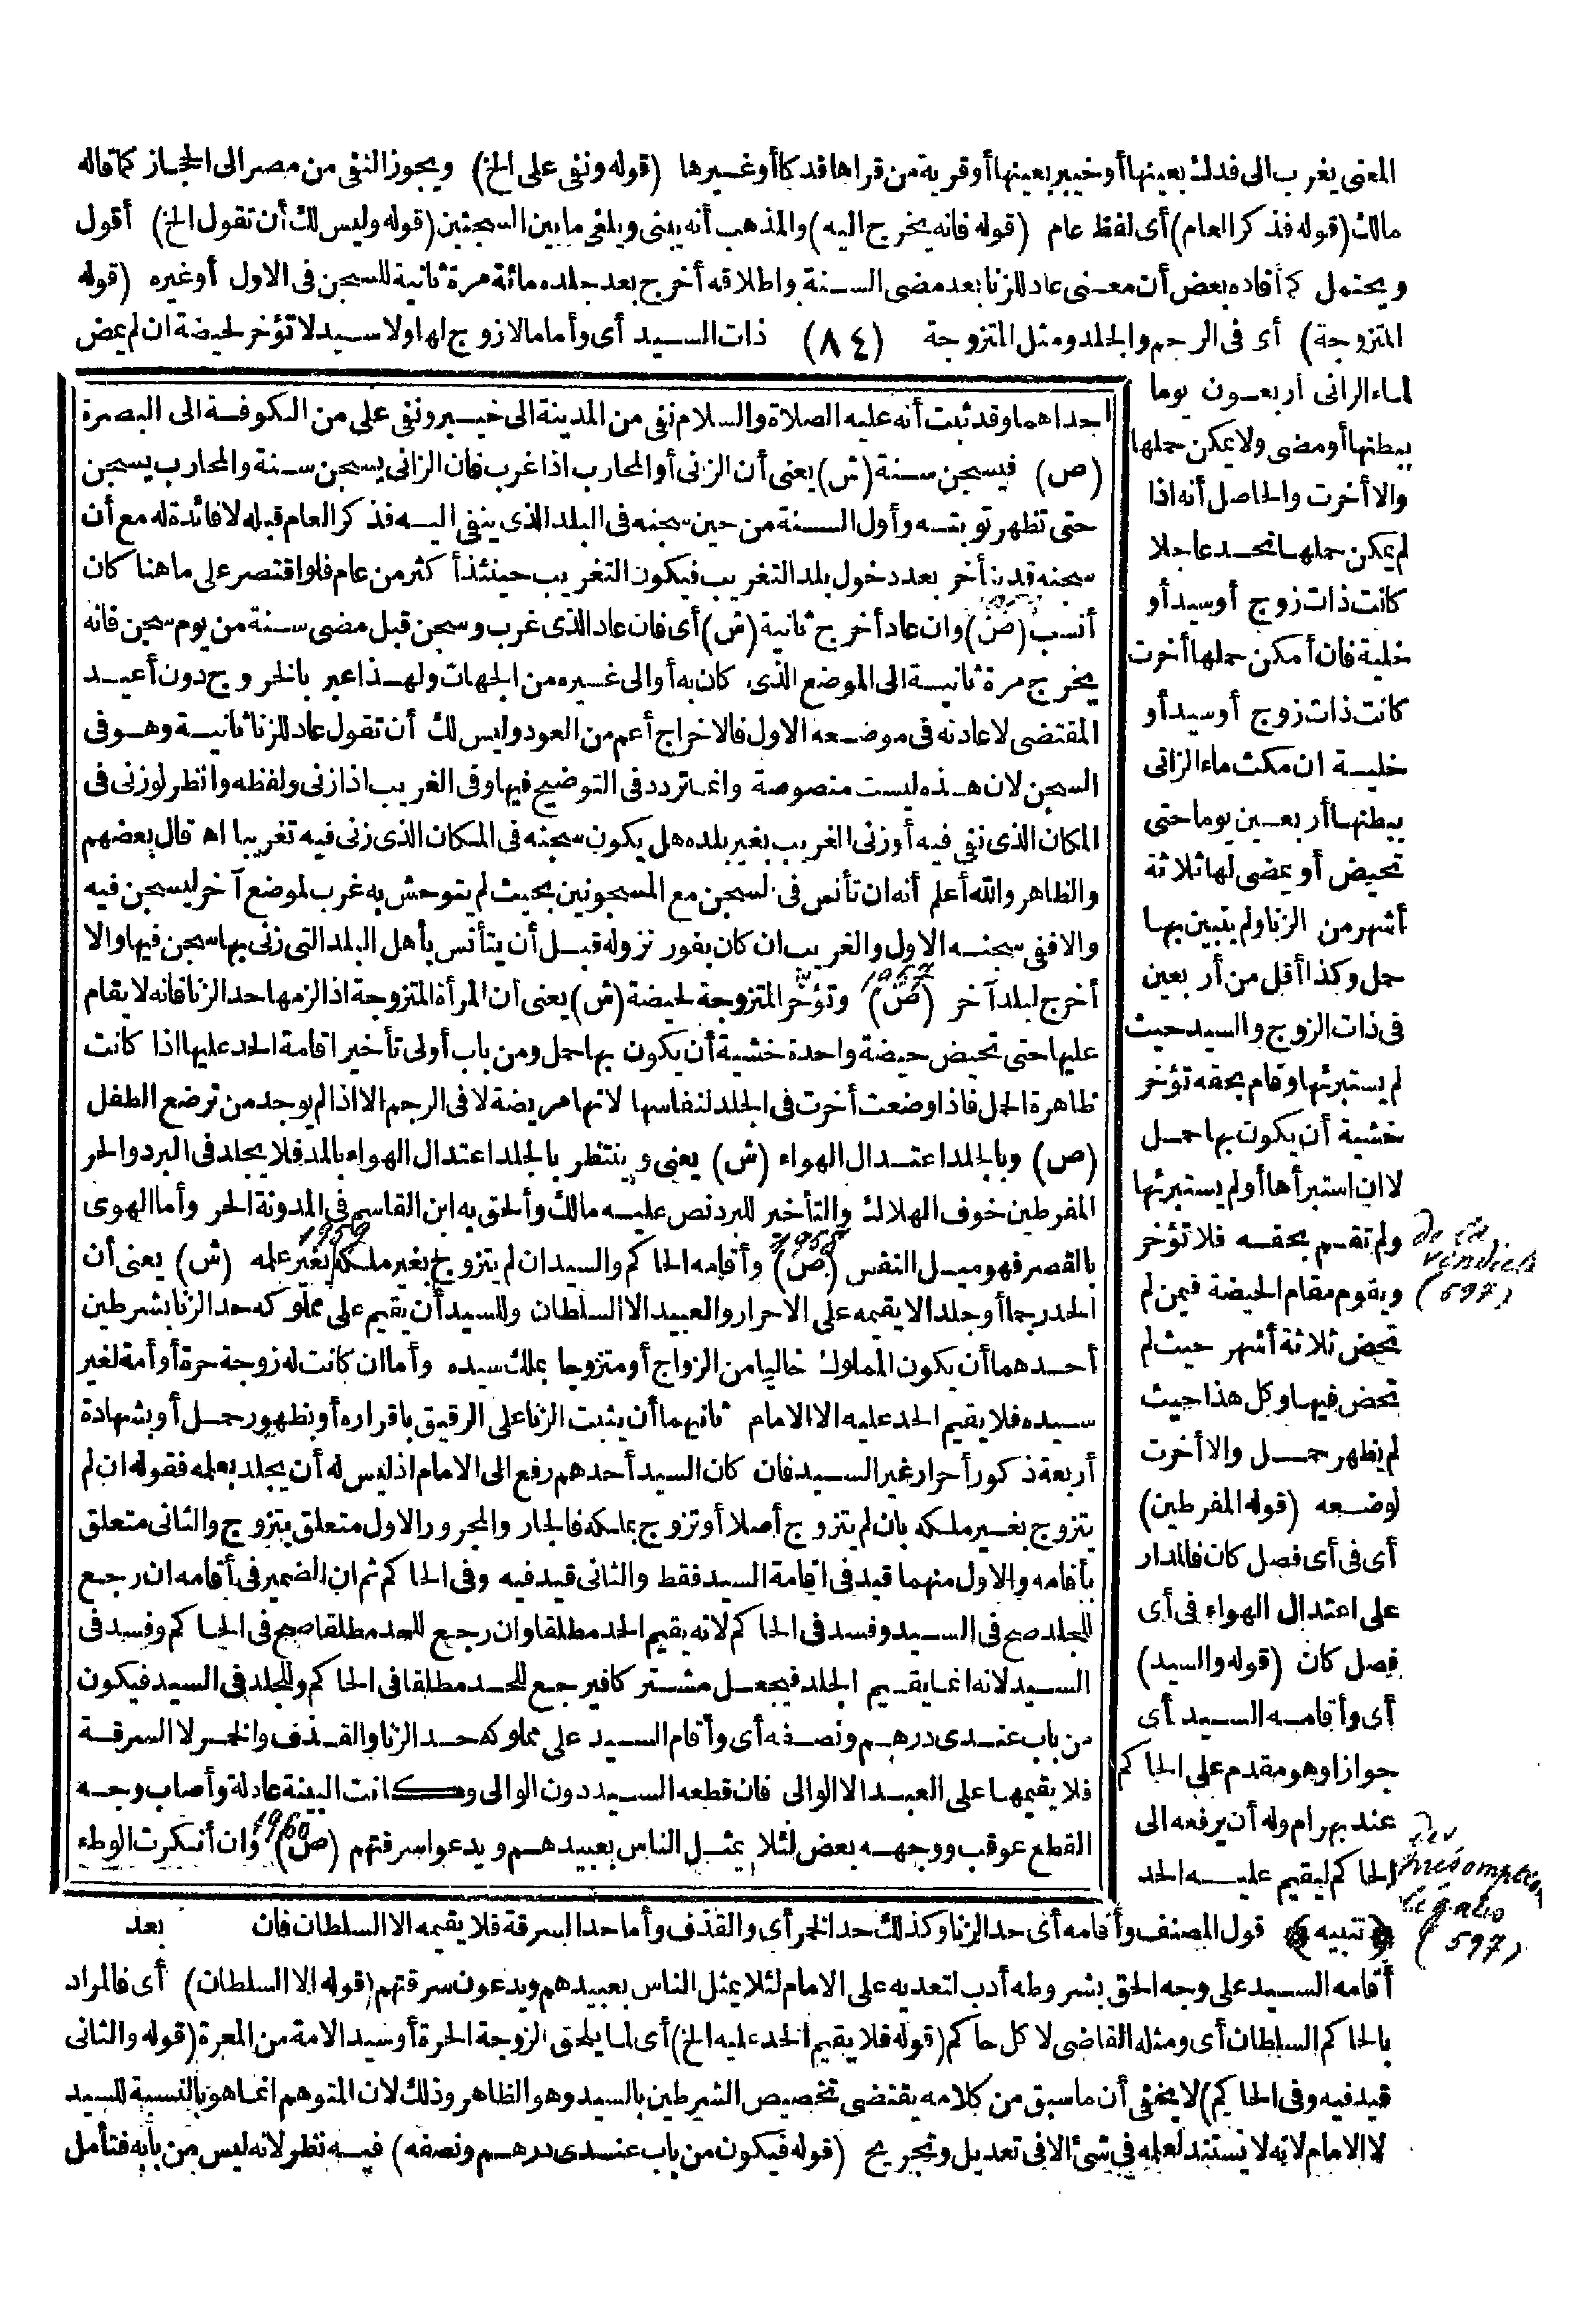 المعنى يغرب الى فدك بعينها أو خيبر بعينها أو قرية من قراها فدكا أو غيرها (قوله ونفى على الخ) ويجوز النفى من مصر الى الحجاز كما قاله
مالك (قوله فذكر العام) أى لفظ عام (قوله فانه يخرج اليه) والمذهب أنه يبنى ويلغى ما بين السجنين (قوله وليس لك أن تقول الخ) أقول
ويحتمل كما أفاده بعض أن معنى عاد للزنا بعد مضى السنة واطلاقه أخرج بعد جلده مائة مرة ثانية للسجن فى الاول أو غيره (قوله
المتزوجة) أى فى الرجم والجلد ومثل المتزوجة (٨٤) ذات السيد أى وأما مالا زوج لها ولا سيد لا تؤخر لحيضة ان لم يمض
لماء الزانى أربعون يوما
ببطنها أو مضى ولا يمكن حملها
والا أخرت والحاصل أنه اذا
لم يمكن حملها تحد عاجلا
كانت ذات زوج أو سيد أو
خلية فان أمكن حملها أخرت
كانت ذات زوج أو سيد أو
خلية ان مكث ماء الزانى
ببطنها أربعين يوما حتى
تحيض أو يمضى لها ثلاثة
أشهر من الزنا ولم يتبين بها
حمل وكذا أقل من أربعين
فى ذات الزوج والسيد حيث
لم يستبرئها وقام بحقه تؤخر
خشية أن يكون بها حمل
لا ان استبرأها أو لم يستبرئها
ولم تقم بحقه فلا تؤخر
ويقوم مقام الحيضة فيمن لم
تحض ثلاثة أشهر حيث لم
تحض فيها وكل هذا حيث
لم يظهر حمل والا أخرت
لوضعه (قوله المفرطين)
أى فى أى فصل كان فالمدار
على اعتدال الهواء فى أى
فصل كان (قوله والسيد)
أى وأقامه السيد أى
جوازا وهو مقدم على الحاكم
عند بهرام وله أن يرفعه الى
الحاكم ليقيم عليه الحد
احداهما وقد ثبت أنه عليه الصلاة والسلام نفى من المدينة الى خيبر ونفى على من الكوفة الى البصرة
(ص) فيسجن سنة (ش) يعنى أن الزنى أو المحارب اذا غرب فان الزانى يسجن سنة والمحارب يسجن
حتى تظهر توبته وأول السنة من حين سجنه فى البلد الذى ينفى اليه فذكر العام قبله لا فائدة له مع أن
سجنه قد يتأخر بعد دخول بلد التغريب فيكون التغريب حينئذ أكثر من عام فلو اقتصر على ما هنا كان
أنسب (ص) وان عاد أخرج ثانية (ش) أى فان عاد الذى غرب وسجن قبل مضى سنة من يوم سجن فانه
يخرج مرة ثانية الى الموضع الذى كان به أو الى غيره من الجهات ولهذا عبر بالخروج دون أعيد
المقتضى لاعادته فى موضعه الاول فالاخراج أعم من العود وليس لك أن تقول عاد للزنا ثانية وهو فى
السجن لان هذه ليست منصوصة وانما تردد فى التوضيح فيها وفى الغريب اذا زنى ولفظه وانظر لو زنى فى
المكان الذى نفى فيه أو زنى الغريب بغير بلده هل يكون سجنه فى المكان الذى زنى فيه تغريبا اه قال بعضهم
والظاهر والله أعلم أنه ان تأنس فى السجن مع المسجونين بحيث لم يتوحش به غرب لموضع آخر ليسجن فيه
والا فنى سجنه الاول والغريب ان كان بفور نزوله قبل أن يتأنس بأهل البلد التى زنى بها سجن فيها والا
أخرج لبلد آخر (ص) وتؤخر المتزوجة لحيضة (ش) يعنى أن المرأة المتزوجة اذا لزمها حد الزنا فانه لا يقام
عليها حتى تحيض حيضة واحدة خشية أن يكون بها حمل ومن باب أولى تأخير اقامة الحد عليها اذا كانت
ظاهرة الحمل فاذا وضعت أخرت فى الجلد لنفاسها لانها مريضة لا فى الرجم الا اذا لم يوجد من ترضع الطفل
(ص) وبالجلد اعتدال الهواء (ش) يعنى وينتظر بالجلد اعتدال الهواء بالمد فلا يجلد فى البرد والحر
المفرطين خوف الهلاك والتأخير للبرد نص عليه مالك وألحق به ابن القاسم فى المدونة الحر وأما الهوى
1958 1959
بالقصر فهو ميل النفس (ص) وأقامه الحاكم والسيد ان لم يتزوج بغير ملكه بغير علمه (ش) يعنى أن
الحد رجما أو جلدا لا يقيمه على الاحرار والعبيد الا السلطان وللسيد أن يقيم على مملوكه حد الزنا بشرطين
أحدهما أن يكون المملوك خاليا من الزواج أو متزوجا بملك سيده وأما ان كانت له زوجة حرة أو أمة لغير
سيده فلا يقيم الحد عليه الا الامام ثانيهما أن يثبت الزنا على الرقيق باقراره أو بظهور حمل أو بشهادة
أربعة ذكور أحرار غير السيد فان كان السيد أحدهم رفع الى الامام اذ ليس له أن يجلد بعلمه فقوله ان لم
يتزوج بغير ملكه بان لم يتزوج أصلا أو تزوج بملكه فالجار والمجرور الاول متعلق بيتزوج والثانى متعلق
بأقامه والاول منهما قيد فى اقامة السيد فقط والثانى قيد فيه وفى الحاكم ثم ان الضمير فى أقامه ان رجع
للجلد صح فى السيد وفسد فى الحاكم لانه يقيم الحد مطلقا وان رجع للحد مطلقا صح فى الحاكم وفسد فى
السيد لانه انما يقيم الجلد فيجعل مشتركا فيرجع للحد مطلقا فى الحاكم وللجلد فى السيد فيكون
من باب عندى درهم ونصفه أى وأقام السيد على مملوكه حد الزنا والقذف والخمر لا السرقة
فلا يقيمها على العبد الا الوالى فان قطعه السيد دون الوالى وكانت البينة عادلة وأصاب وجه
1960
القطع عوقب ووجهه بعض لئلا يمثل الناس بعبيدهم ويدعوا سرقتهم (ص) وان أنكرت الوطء
de la
vindicte
(597)
des
présomptions
légales
(597)
﴿تنبيه﴾ قول المصنف وأقامه أى حد الزنا وكذلك حد الخمر أى والقذف وأما حد السرقة فلا يقيمه الا السلطان فان بعد
أقامه السيد على وجه الحق بشروطه أدب لتعديه على الامام لئلا يمثل الناس بعبيدهم ويدعون سرقتهم (قوله الا السلطان) أى فالمراد
بالحاكم السلطان أى ومثله القاضى لا كل حاكم (قوله فلا يقيم الحد عليه الخ) أى لما يلحق الزوجة الحرة أو سيد الامة من المعرة (قوله والثانى
قيد فيه وفى الحاكم) لا يخفى أن ما سبق من كلامه يقتضى تخصيص الشرطين بالسيد وهو الظاهر وذلك لان المتوهم انما هو بالنسبة للسيد
لا الامام لانه لا تستند لعلمه فى شئ الا فى تعديل وتجريح (قوله فيكون من باب عندى درهم ونصفه) فيه نظر لانه ليس من بابه فتأمل